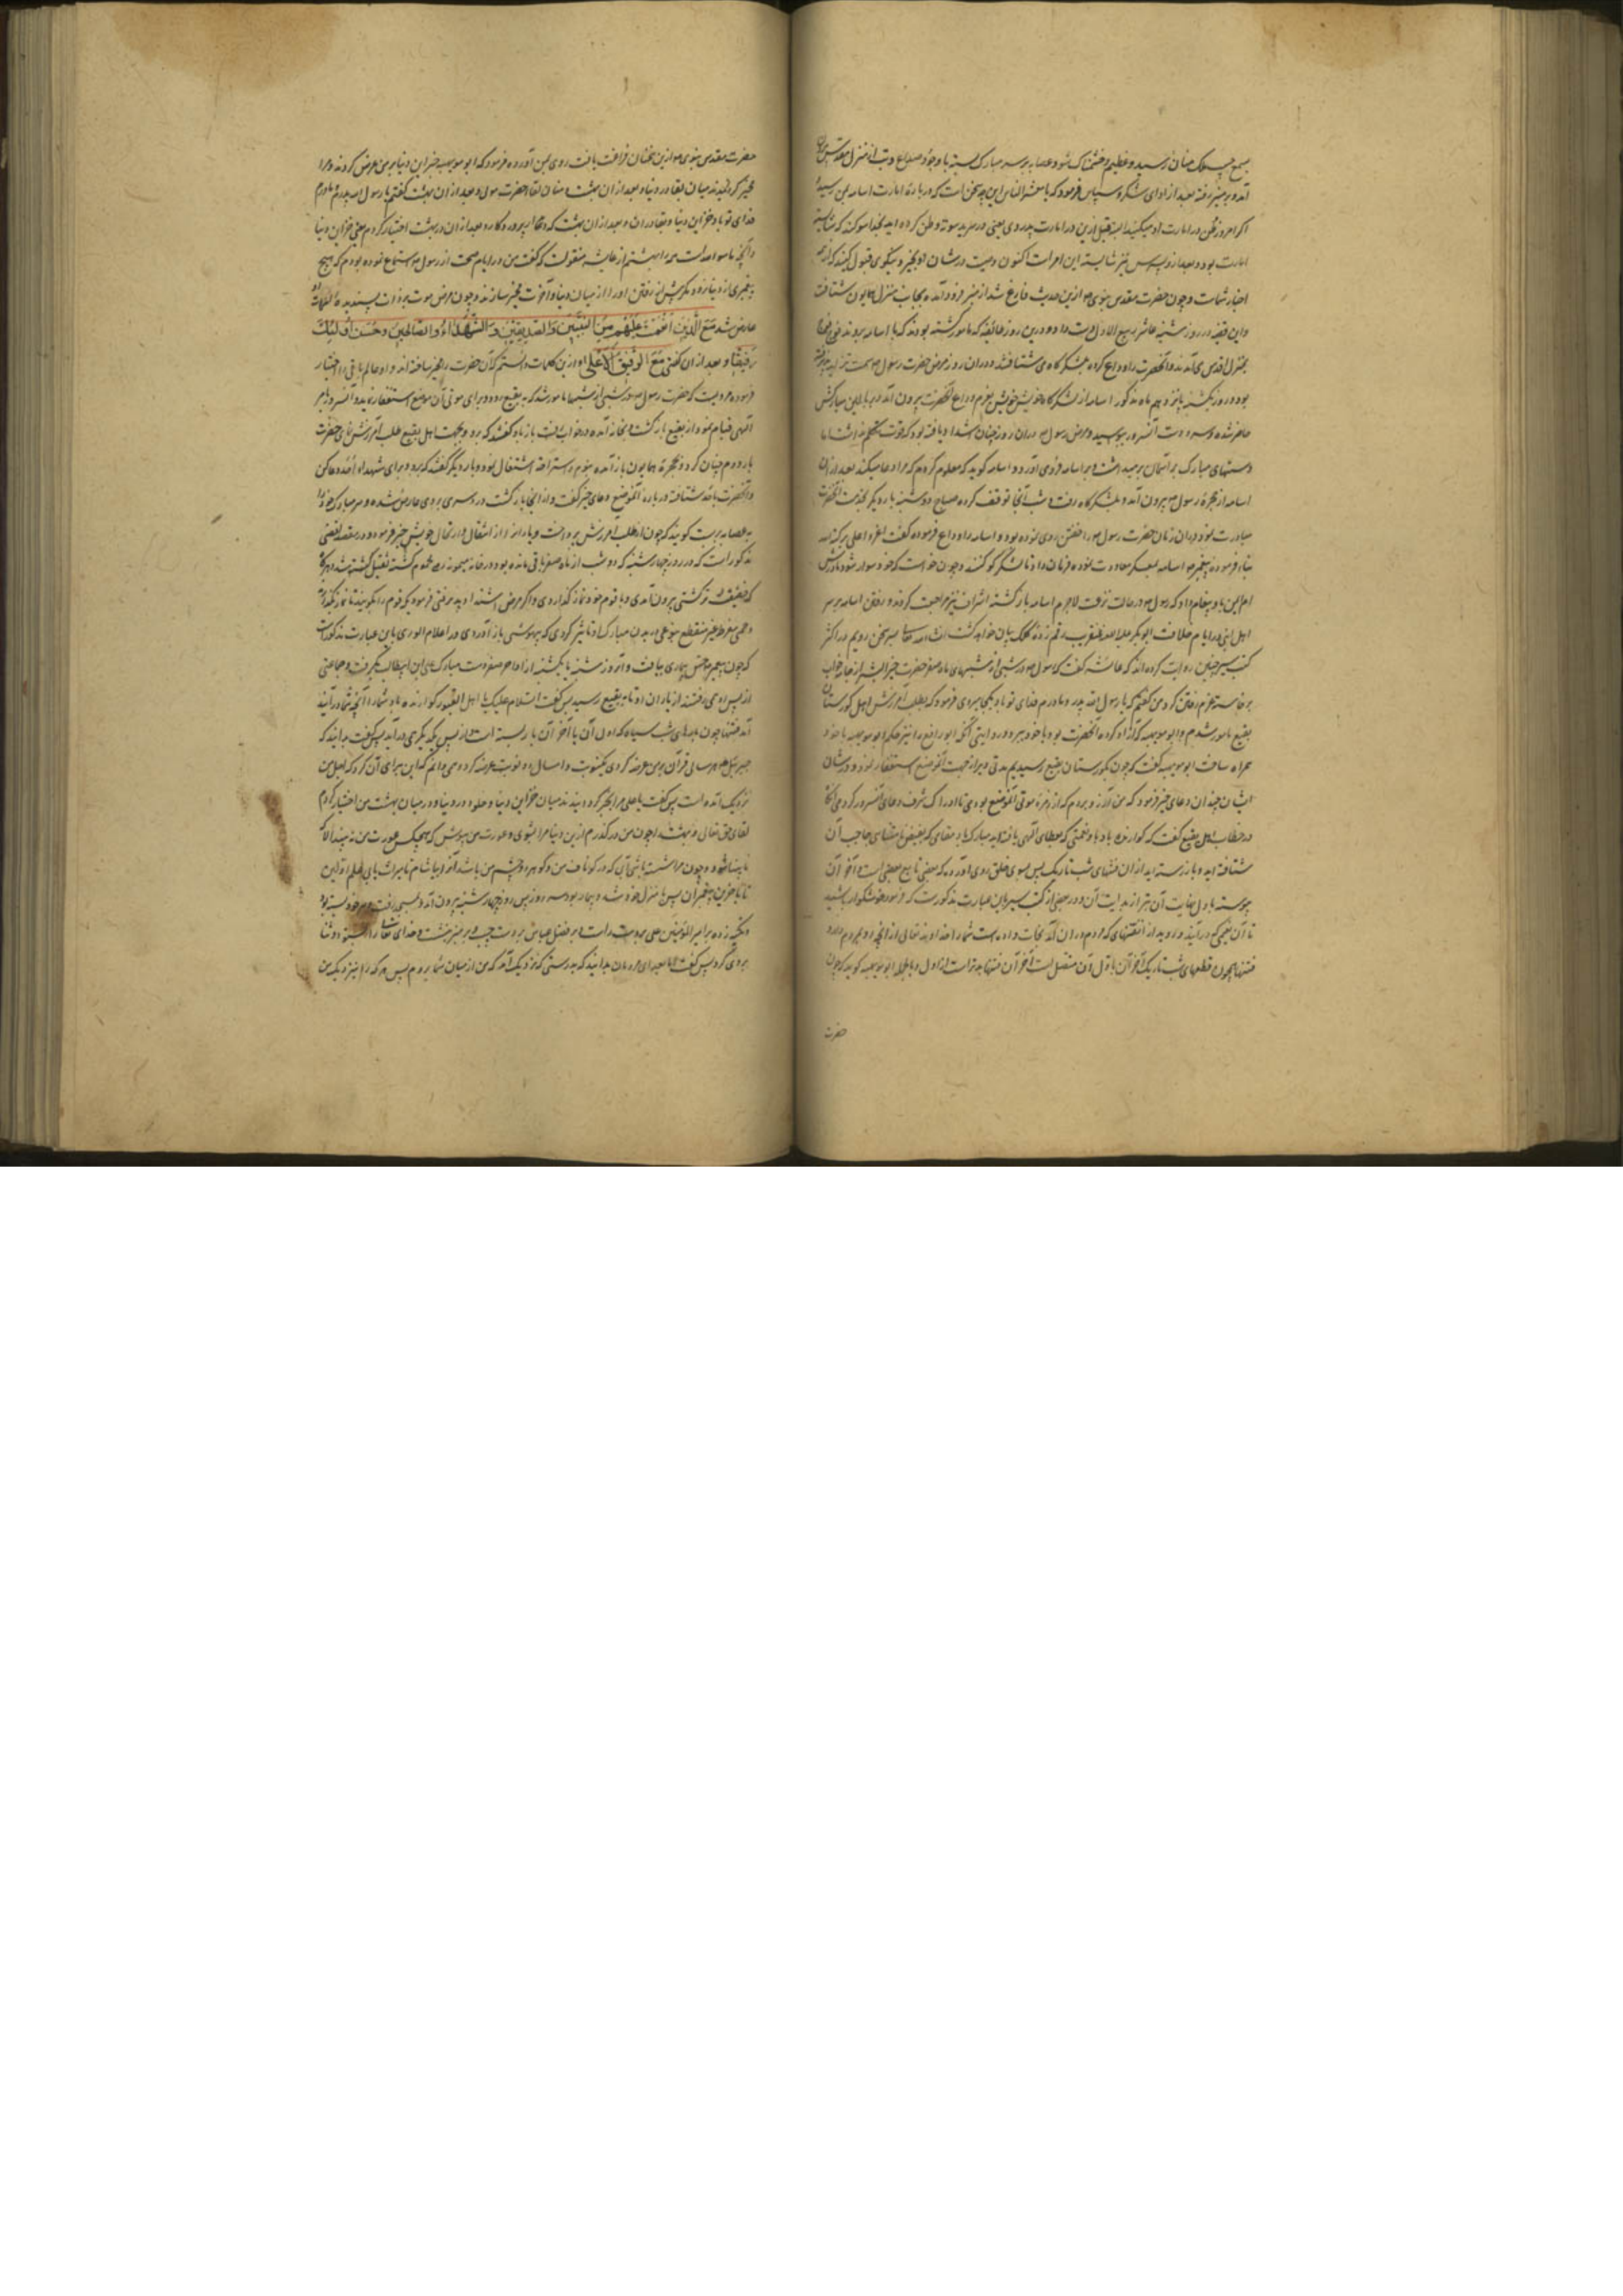 بسمع همایون رسید و عظیم خشمناک شد و عصابه بر سر مبارک بسته با وجود صداع و تب از منزل مقدس
آمد و بر منبر رفته بعد از ادای شکر و سپاس فرمود که یا معشر الناس این چه سخن است که در باره امارت اسامه بمن رسیده
اگر امروز طعن در امارت او میکنید البته قبل ازین در امارت پدر وی یعنی در سریه موته طعن کرده اید بخدا سوکند که شایسته
امارت بود و بعد از وی پسرش نیز شایسته این امر است اکنون وصیت در شان او بخیر و نیکوی قبول کنید که از جمله
اخیار شماست و چون حضرت مقدس نبوی ص ازین حدیث فارغ شد از منبر فرود آمده بجانب منزل همایون شتافت
و این قضیه در روز شنبه عاشر ربیع الاول دست داد و درین روز طائفه که مامور گشته بودند که با اسامه بروند فوج فوج
بمنزل اقدس می آمدند و آنحضرت را وداع کرده بلشکرگاه می شتافتند و دران روز مرض حضرت رسول ص
بود و روز یکشنبه یازدهم ماه مذکور اسامه از لشکرگاه خویش بعزم وداع آنحضرت بیرون آمد و ببالین مبارکش
حاضر شده و سر و دست آنسرور ببوسید و مرض رسول ص دران روز چنان اشتداد یافته بود که قوت تکلم نداشت اما
دستهای مبارک بر آسمان برمیداشت و بر اسامه فرود می آورد و اسامه گوید که معلوم کردم که مرا دعا میکند بعد ازان
اسامه از حجره رسول ص بیرون آمد و بلشکرگاه رفت و شب آنجا توقف کرده صباح دوشنبه بار دیگر بخدمت آنحضرت
مبادرت نمود و دران زمان حضرت رسول ص را خفتی روی نموده بود و اسامه را وداع فرموده گفت اغز علی برکة الله
بنابر فرموده پیغمبر ص اسامه بمعسکر معاودت نموده فرمان داد تا لشکر کوچ کنند و چون خواست که خود سوار شود مادرش
ام ایمن باو پیغام داد که رسول ص در حالت نزعست لاجرم اسامه بازگشته اشراف نیز مراجعت کردند و رفتن اسامه بر سر
اهل ابنی در ایام خلافت ابو بکر عنقریب رقم زده کلک بیان خواهد گشت انشاء الله تعالی بسر سخن رویم در اکثر
کتب سیر چنین روایت کرده اند که عایشه گفت که رسول ص در شبی از شبهای ماه صفر حضرت خیر البشر از جامه خواب
برخاسته عزم رفتن کرد من گفتم که یا رسول الله پدر و مادرم فدای تو باد بکجا میروی فرمود که بطلب آمرزش اهل گورستان
بقیع مامور شدم و ابو مویهبه که آزاد کرده آنحضرت بود با خود ببرد و در روایتی آنکه ابو رافع را نیز حکم ابو مویهبه با خود
همراه ساخت ابو مویهبه گفت که چون بگورستان بقیع رسیدیم مدتی دیر از جهت آن موضع استغفار نمود و در شان
ایشان چندان دعای خیر فرمود که من آرزو بردم که از زمره موتی آن موضع بودمی تا ادراک شرف دعای آنسرور کردمی آنگاه
در خطاب اهل بقیع گفت که گوارنده باد نعمتی که بعطای الهی یافته اید مبارک باد مقامی که
شتافته اید و باز رسته اید از ان فتنهای شب تاریک پس بسوی خلق روی آورده که بعضی تابع بعضی است آخر آن
پیوسته باول نهایت آن بتر از بدایت آن و در بعضی از کتب سیر باین عبارت مذکورست که فرمود خوشگوار باشید
تا آن نعیمی که در آیند درو بد از فتنهای که مردم دران اند نجات داده است شما را خداوند تعالی از آنچه
فتنها همچون قطعهای شب تاریک آخر آن باول آن متصل است آخر آن فتنها بدتر است از اول و باجمله ابو مویهبه گوید که چون
حضرت
حضرت مقدس نبوی ص ازین سخنان فراغت یافت روی بمن آورده فرمود که ابو مویهبه خزاین دنیا بر من عرض کردند و مرا
مخیر گردانیدند میان بقا در دنیا و بعد از ان بهشت و میان لقاء حضرت مولی و بعد از ان بهشت گفتم یا رسول الله پدرم مادرم
فدای تو باد خزاین دنیا و بقا در ان و بعد از ان بهشت که لقاء پروردگار و بعد از ان بهشت اختیار کردم یعنی خزاین دنیا
و از عایشه منقولست که گفت من در ایام صحت از رسول ص استماع نموده بودم که هیچ
پیغمبری از دنیا نرود مگر پیش از رفتن او را از میان دنیا و آخرت مخیر سازند و چون مرض موت بر ذات پسندیده صفات
عارض شد مَعَ الَّذِينَ أَنْعَمْتَ عَلَيْهِم مِنَ النَّبِيِّينَ وَالصِّدِّيقِينَ وَالشُّهَدَاءِ وَالصَّالِحِينَ وَحَسُنَ أُولَئِكَ
رَفِيقًا و بعد از ان گفتی مَعَ الرَّفِيقِ الْأَعْلَى و ازین کلمات دانستم که آن حضرت را مخیر ساخته اند و او عالم باقی را اختیار
فرموده مرویست که حضرت رسول ص در شبی از شبها مامور شد که به بقیع رود و برای موتی آن موضع استغفار نماید و آنسرور بامر
الهی قیام نمود از بقیع بازگشت و بخانه آمده در خواب رفت باز باو گفتند که برو و بجهت اهل بقیع طلب آمرزش نمای حضرت
بار دوم چنان کرد و بحجره همایون باز آمده بنوم و استراحت اشتغال نمود و بار دیگر گفتند که برو و برای شهداء احد دعا کن
و آنحضرت باحد شتافته در باره آن موضع دعای خیر گفت و از آنجا بازگشت درد سری بر وی عارض شده و سر مبارک خود را
بعصابه بربست گویند که چون از طلب آمرزش پرداخت و یاران را از انتقال و ارتحال خویش خبر فرمود و در مقصد اقصی
مذکور است که در روز چهارشنبه که دو شب از ماه صفر باقی مانده بود در خانه میمونه
که خفیفتر گشتی بیرون آمدی و با قوم خود نماز گذاردی و اگر مرض اشتداد پذیرفتی فرمود که قوم را بگویند تا نماز بگذارند
و حمی مفرط غیر منقطع بنوعی در بدن مبارک او تاثیر کردی که بیهوشی باز آوردی و در اعلام الوری باین عبارت مذکورست
که چون پیغمبر ص حس بیماری یافت و آن روز شنبه یا یکشنبه از اواخر صفر دست مبارک علی ابن ابیطالب بگرفت و جماعتی
از پس او میرفتند از یاران او تا به بقیع رسید پس گفت السلام علیکم یا اهل القبور گوارنده باد شما را آنچه شما در آنید
آمد فتنها چون پارهای شب سیاه که اول آن با آخر آن باز بسته است از پس یکدیگر می در آید پس گفت بدانید که
جبرئیل هر سالی قرآن بر من عرضه کردی یکنوبت و امسال دو نوبت عرضه کرد و نمی دانم که این برای آن کرد که اجل من
نزدیک آمده است پس گفت یا علی مرا مخیر گردانیدند میان خزاین دنیا و خلود در دنیا و میان بهشت من اختیار کردم
لقای حق تعالی و بهشت را چون من درگذرم ازین دنیا مرا بشوی و عورت من بپوش که هیچکس عورت من نه بیند الا که
نابینا شود و چون مرا شسته باشی آبی که در گو ناف من و گوها و چشم من باشد آنرا بیاشام تا میراث یابی علم اولین
تا آخرین پیغمبران پس بمنزل خود شد و بیمار بود سه روز پس روز چهارشنبه بیرون آمد و بمسجد رفت سر خود بسته بود
و تکیه زده بر امیر المؤمنین علی بدست راست و بر فضل عباس بدست چپ و بر منبر نشست و خدای تعالی را حمد و ثنا
بروی کرد پس گفت اما بعد ای مردمان بدانید که بدرستی که نزدیک آمد که من از میان شما بروم پس هر که را نیز نزدیک من